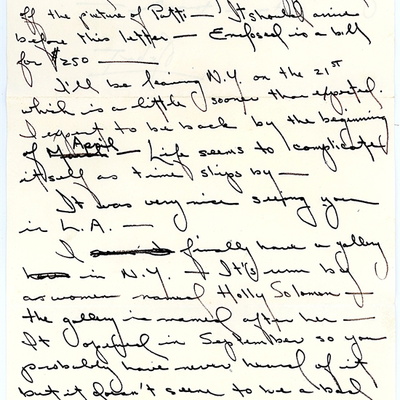 off the picture of Patti — It should arrive
before this letter — Enclosed is a bill
for $250 —
I'll be leaving N.Y. on the 21ST
which is a little sooner than expected.
I expect to be back by the beginning
of April — Life seems to complicate
itself as time slips by —
It was very nice seeing you
in L.A. —
I finally have a gallery
in N.Y. — It's run by
a women named Holly Solomon —
the gallery is named after her —
It opened in September so you
probably have never heard of it
but it doesn't seem to be a bad